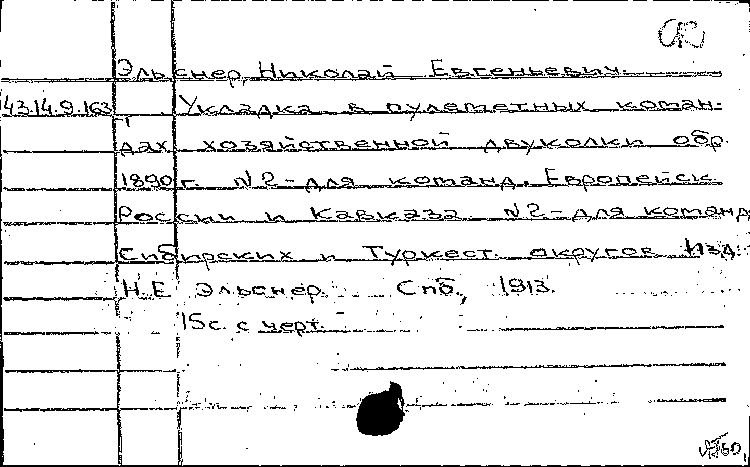 Эльснер, Николай Евгеньевич.
43.14.9.163 Укладка в пулеметных коман-
дах хозяйственной двуколки обр.
1890 г. №2-для команд. Европейск.
России и Кавказа. №2-для команд
Сибирских и Туркест. округов. Изд.
Н.Е. Эльснер. Спб., 1913.
15с. с черт.